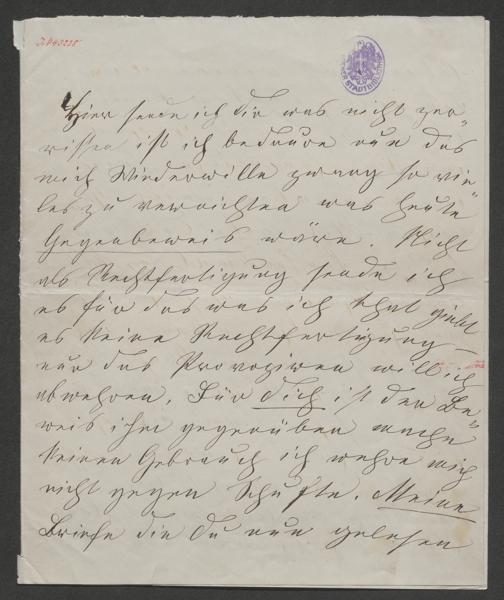 Hier sende ich dir was nicht zer=
rissen ist ich bedaure nun das
mich Wiederwille zwang so vie=
les zu vernichten was heute
Gegenbeweis wäre. Nicht
als Rechtfertigung sende ich
es für das was ich that giebt
es keine Rechtfertigung —
nur das Provoziren will ich
abwehren. Für dich ist der Be=
weis ihm gegenüber mache
keinen Gebrauch ich wehre mich
nicht gegen Schufte. Meine
Briefe die du nun gelesen